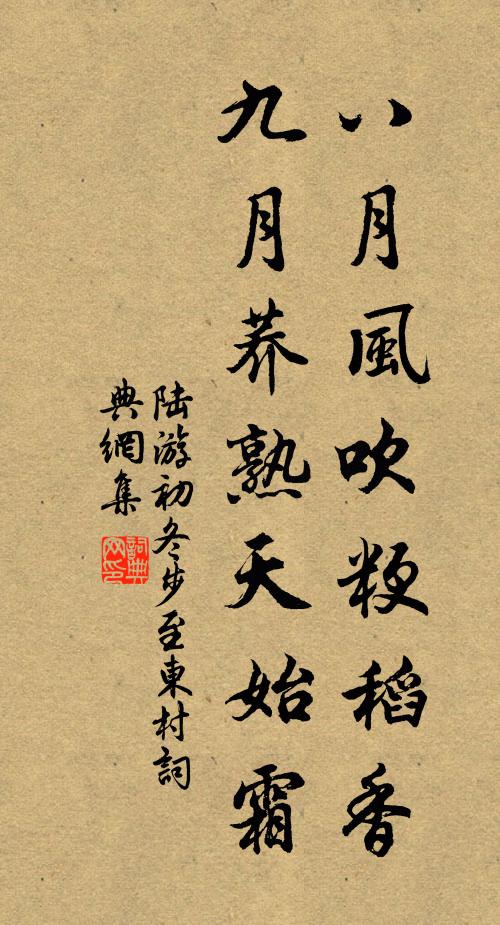 八月風吹粳稻香
九月荞熟天始霜
陆游初冬步至東村詞
典網集
詞典网印